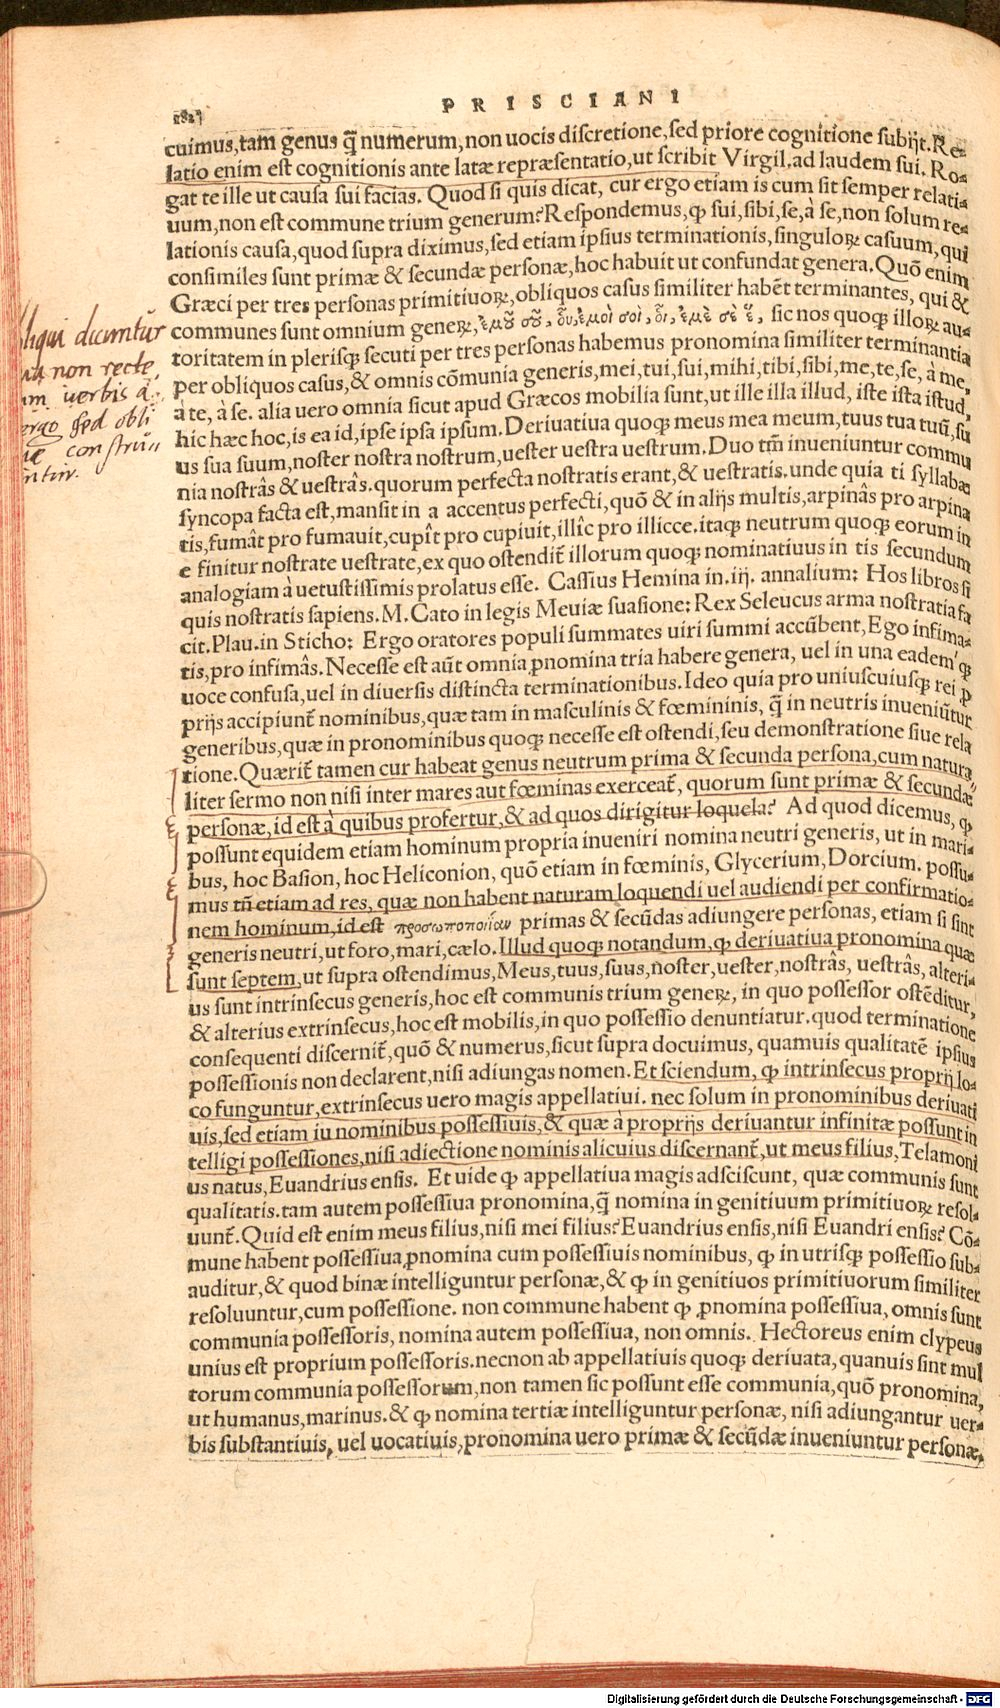 PRISCIANI
cuimus,tam genus q̃ numerum,non uocis discretione,sed priore cognitione subijt.Re-
latio enim est cognitionis ante latæ repræsentatio,ut scribit Virgil.ad laudem sui. Ro-
gat te ille ut causa sui facias. Quod si quis dicat, cur ergo etiam is cum sit semper relati-
uum,non est commune trium generum?Respondemus,ꝙ sui,sibi,se,à se,non solum re-
lationis causa,quod supra diximus,sed etiam ipsius terminationis,singuloꝝ casuum,qui
consimiles sunt primæ & secundæ personæ,hoc habuit ut confundat genera.Quõ enim
Græci per tres personas primitiuoꝝ,obliquos casus similiter habẽt terminantes, qui &
communes sunt omnium geneꝝ,ἐμοῦ σοῦ, οὗ,ἐμοὶ σοὶ, οἷ, ἐμὲ σὲ ἕ, sic nos quoqꝫ illoꝝ au-
toritatem in plerisqꝫ secuti per tres personas habemus pronomina similiter terminantia
per obliquos casus,& omnis cõmunia generis,mei,tui,sui,mihi,tibi,sibi,me,te,se, à me,
à te, à se. alia uero omnia sicut apud Græcos mobilia sunt,ut ille illa illud, iste ista istud,
hic hæc hoc,is ea id,ipse ipsa ipsum.Deriuatiua quoqꝫ meus mea meum,tuus tua tuũ,su
us sua suum,noster nostra nostrum,uester uestra uestrum.Duo tm̃ inueniuntur commu
nia nostrâs & uestrâs.quorum perfecta nostratis erant,& uestratis.unde quia ti syllabæ
syncopa facta est,mansit in a accentus perfecti,quõ & in alijs multis,arpinâs pro arpina
tis,fumât pro fumauit,cupît pro cupiuit,illîc pro illicce.itaqꝫ neutrum quoqꝫ eorum in
e finitur nostrate uestrate,ex quo ostendit̃ illorum quoqꝫ nominatiuus in tis secundum
analogiam à uetustissimis prolatus esse. Cassius Hemina in.iij. annalium: Hos libros si
quis nostratis sapiens.M.Cato in legis Meuiæ suasione:Rex Seleucus arma nostratia fa
cit.Plau.in Sticho: Ergo oratores populi summates uiri summi accũbent,Ego infima-
tis,pro infimâs.Necesse est aũt omnia ꝓnomina tria habere genera, uel in una eademqꝫ
uoce confusa,uel in diuersis distincta terminationibus.Ideo quia pro uniuscuiusqꝫ rei ꝓ
prijs accipiunt̃ nominibus,quæ tam in masculinis & fœmininis, q̃ in neutris inueniũtur
generibus,quæ in pronominibus quoqꝫ necesse est ostendi,seu demonstratione siue rela
tione.Quærit̃ tamen cur habeat genus neutrum prima & secunda persona,cum natura
liter sermo non nisi inter mares aut fœminas exerceat̃, quorum sunt primæ & secundæ
personæ,id est à quibus profertur,& ad quos dirigitur loquela? Ad quod dicemus, ꝙ
possunt equidem etiam hominum propria inueniri nomina neutri generis, ut in mari-
bus, hoc Basion, hoc Heliconion, quõ etiam in fœminis, Glycerium,Dorcium. possu-
mus tñ etiam ad res, quæ non habent naturam loquendi uel audiendi per confirmatio-
nem hominum,id est προσωποποιΐαν primas & secũdas adiungere personas, etiam si sint
generis neutri,ut foro,mari,cælo.Illud quoqꝫ notandum,ꝙ deriuatiua pronomina quæ
sunt septem,ut supra ostendimus,Meus,tuus,suus,noster,uester,nostrâs, uestrâs, alteri-
us sunt intrinsecus generis,hoc est communis trium geneꝝ, in quo possessor ostẽditur,
& alterius extrinsecus,hoc est mobilis,in quo possessio denuntiatur.quod terminatione
consequenti discernit̃,quõ & numerus,sicut supra docuimus, quamuis qualitatẽ ipsius
possessionis non declarent,nisi adiungas nomen.Et sciendum, ꝙ intrinsecus proprij lo-
co funguntur,extrinsecus uero magis appellatiui. nec solum in pronominibus deriuati
uis,sed etiam iu nominibus possessiuis,& quæ à proprijs deriuantur infinitæ possunt in
telligi possessiones,nisi adiectione nominis alicuius discernant̃,ut meus filius,Telamoni
us natus,Euandrius ensis. Et uide ꝙ appellatiua magis adsciscunt, quæ communis sunt
qualitatis.tam autem possessiua pronomina,q̃ nomina in genitiuum primitiuoꝝ resol-
uunt̃.Quid est enim meus filius,nisi mei filius?Euandrius ensis,nisi Euandri ensis? Cõ-
mune habent possessiua ꝓnomina cum possessiuis nominibus, ꝙ in utrisqꝫ possessio sub-
auditur,& quod binæ intelliguntur personæ,& ꝙ in genitiuos primitiuorum similiter
resoluuntur,cum possessione. non commune habent ꝙ ꝓnomina possessiua, omnis sunt
communia possessoris, nomina autem possessiua, non omnis. Hectoreus enim clypeus
unius est proprium possessoris.necnon ab appellatiuis quoqꝫ deriuata,quanuis sint mul
torum communia possessorum,non tamen sic possunt esse communia,quõ pronomina,
ut humanus,marinus.& ꝙ nomina tertiæ intelliguntur personæ, nisi adiungantur uer-
bis substantiuis, uel uocatiuis,pronomina uero primæ & secũdæ inueniuntur personæ,
liqui dicuntur
non recte,
uerbis a
ergo sed obli
constru
ntur.
Digitalisierung gefördert durch die Deutsche Forschungsgemeinschaft - DFG